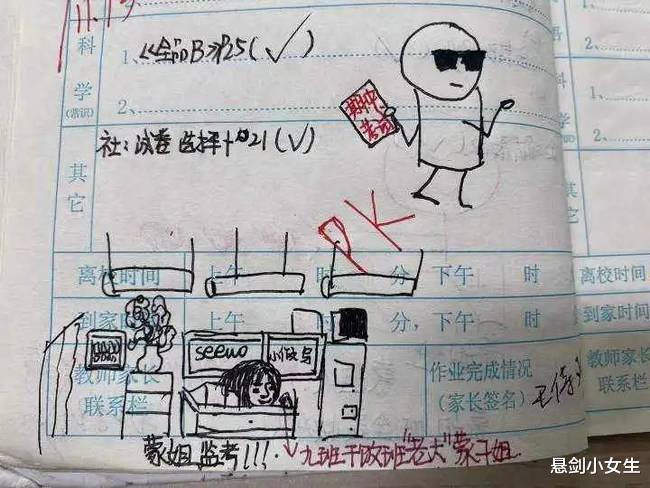 11.13
科学
(常识)
1、《全品B》P25(✓)
2、
1、
2、
社：试卷 选择+21(✓)
期中
考试
其它
PK
离校时间 上午 时 分，下午 时
离校时间
到家时 上午 时 分，下午 时
到家时间
seewo
教师家长
联系栏
作业完成情况
(家长签名)
教师家长
联系栏
蒙姐 监考!!!
悬剑小女生